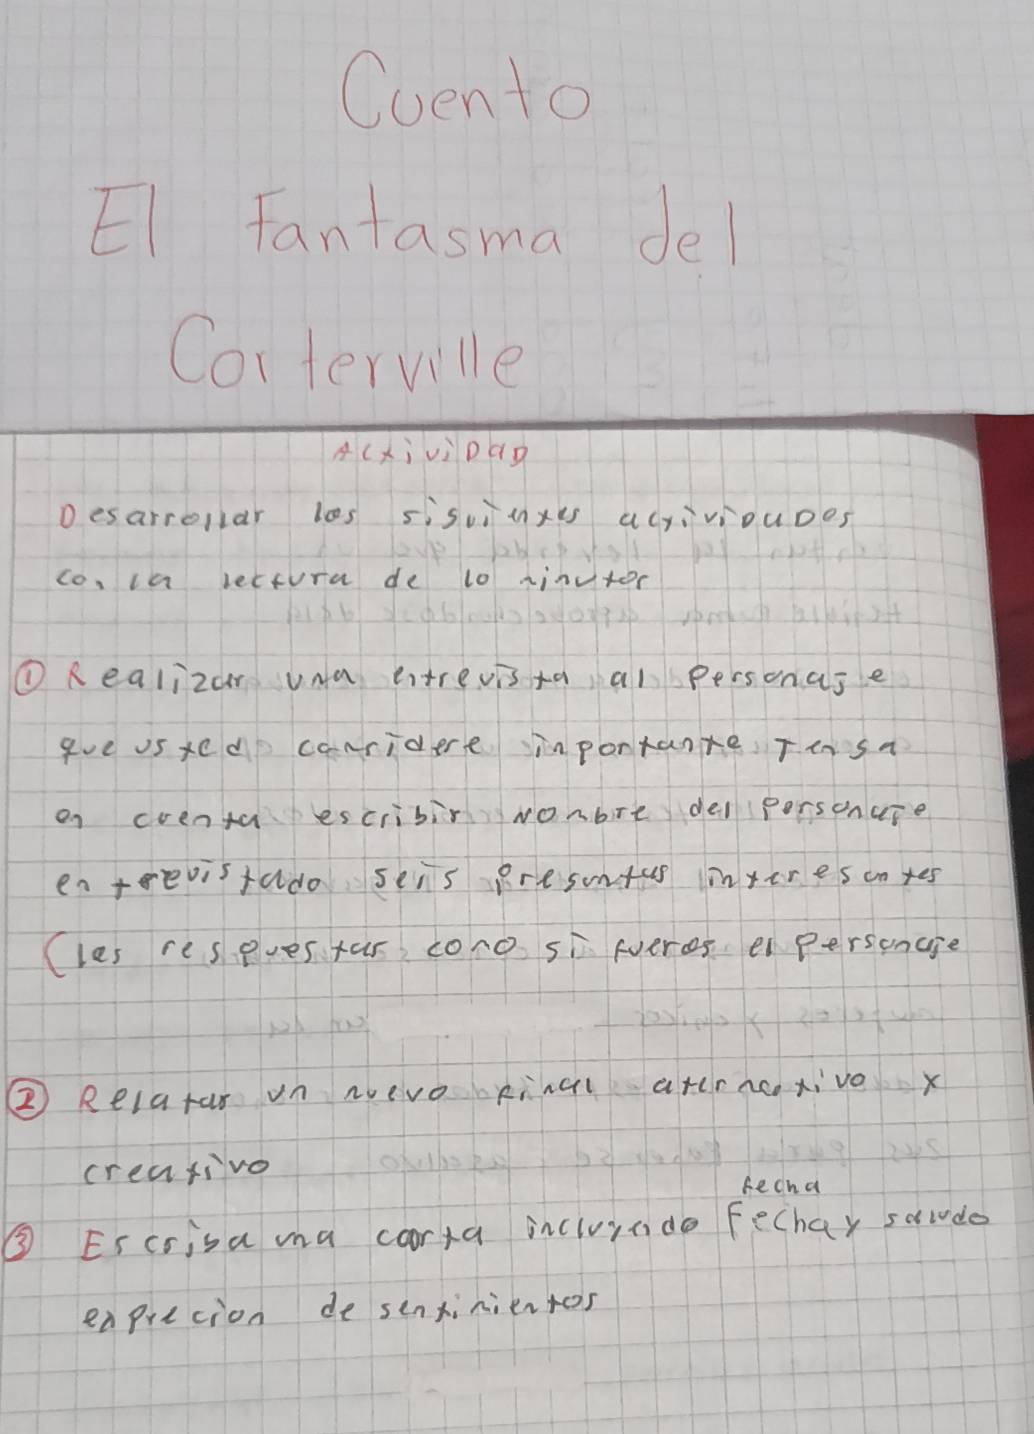 Cuento
El Fantasma del
Corterville
ActiviDaD
Desarrollar las siguientes activiDaDes
con la lectura de 10 minutos
① Realizar una entrevista al Personaje
que usted considere inportante Tenga
en cuenta escribir Nombre del Personaje
entrevistado seis Preguntas interesantes
(las respuestas como si fueras el Personaje
② Relatar un nuevo final alternativo y
creativo
fecha
③ Escriba una carta incluyendo Fecha y saludo
exprecion de sentimientos